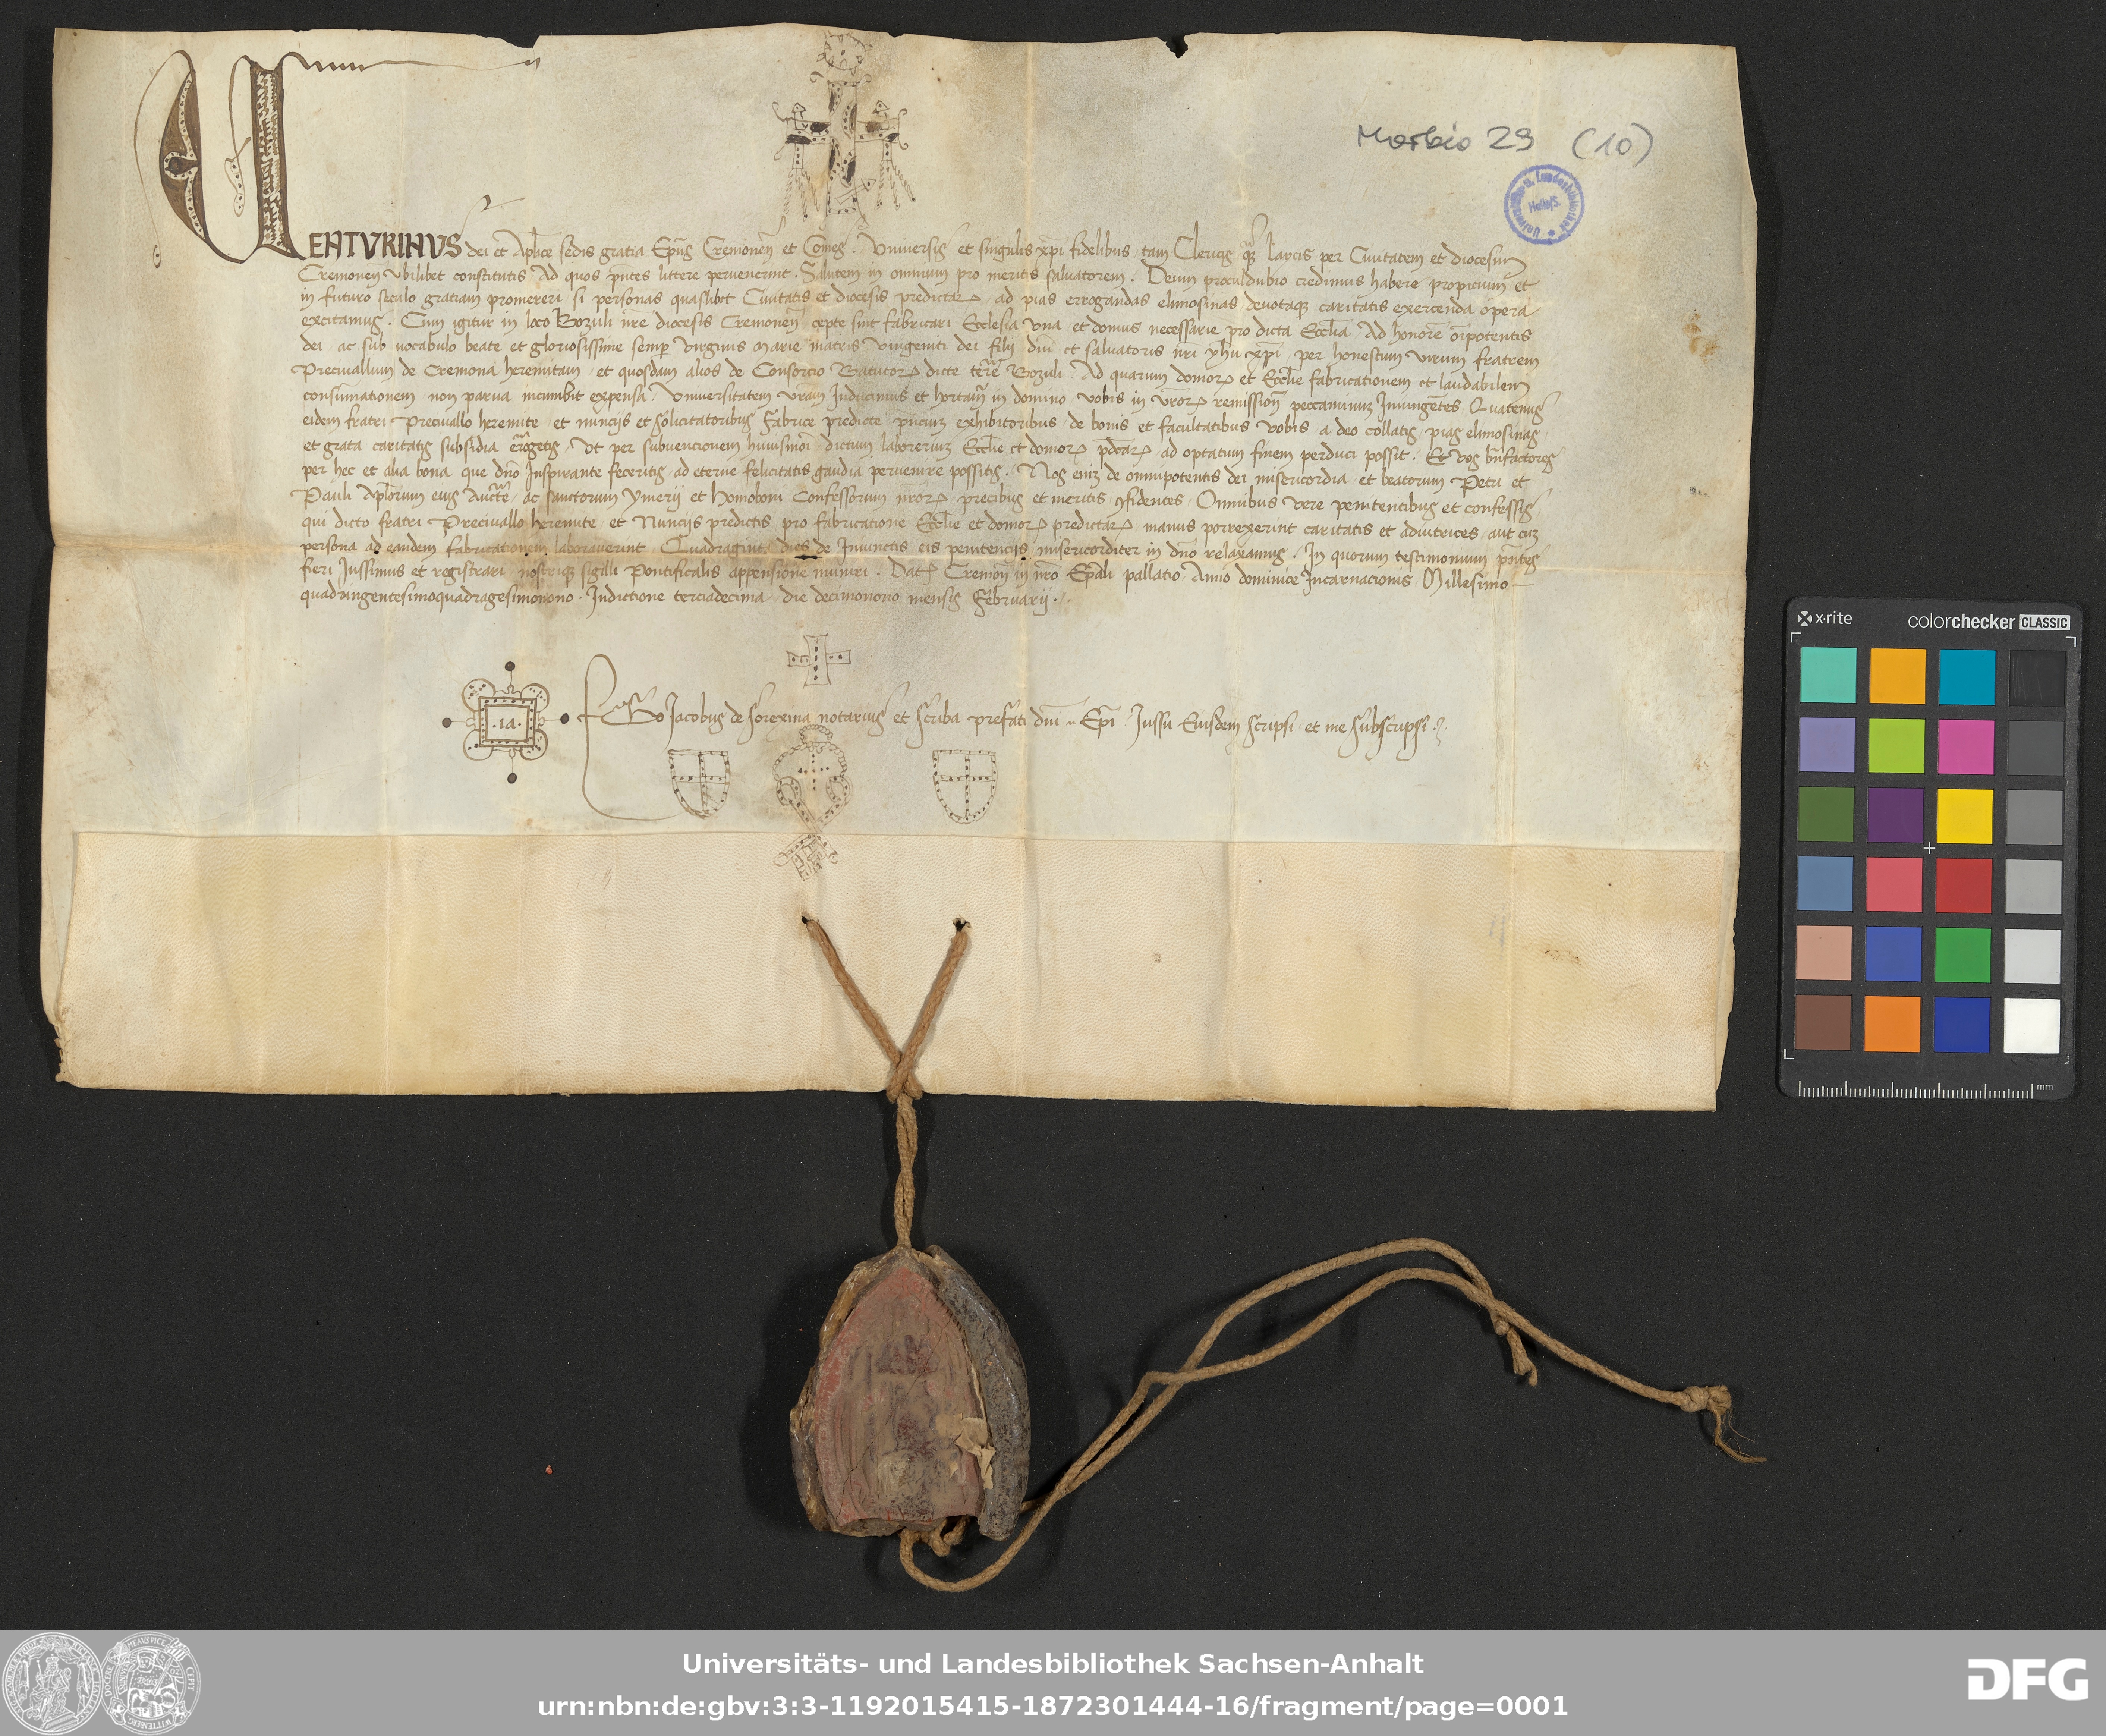 Morbio 29 (10)
Universitäts u. Landesbibliothek Halle/S.
VENTVRINVS dei et Aplice sedis gratia Epus Cremonen et Comes. Vniuersis et singulis xpi fidelibus tam Clericis qz Laycis per Ciuitatem et diocesim
Cremonen vbilibet constitutis Ad quos pntes littere peruenerint. Salutem in omnium pro meritis saluatorem. Deum proculdubio credimus habere propicium et
in futuro seculo gratiam promereri si personas quaslibet Ciuitatis et diocesis predictar ad pias errogandas elimosinas deuotaqz caritatis exercenda opera
excitamus. Cum igitur in loco Bozuli nre diocesis Cremonen cepte sint fabricari Ecclesia vna et domus necessarie pro dicta Ecclia Ad honore oipotentis
dei ac sub vocabulo beate et gloriosissime semp virginis Marie matris vnigeniti dei filij dni et saluatoris nri yhu xpi per honestum virum fratrem
Preciuallum de Cremona heremitam et quosdam alios de Consorcio Batutor dicte terre Bozuli Ad quarum domor et Ecclie fabricationem et laudabilem
consumationem non parua incumbit expensa. Vniuersitatem vram Inducimus et hortam in domino vobis in vror remission peccaminuz Iniungetes Quatenus
eidem fratri Preciuallo heremite et nuncijs et solicitatoribus Fabrice predicte pnciuz exhibitoribus de bonis et facultatibus vobis a deo collatis pias elimosinas
et grata caritatis subsidia erogetis. Vt per subuencionem huiusmoi dictum laboreriuz Ecclie et domor pdcar ad optatum finem perduci possit. Et vos bnfactores
per hec et alia bona que dno Inspirante feceritis ad eterne felicitatis gaudia peruenire possitis. Nos eniz de omnipotentis dei misericordia et beatorum Petri et
Pauli Aplorum eius Aucte ac sanctorum ymerij et Homoboni Confessorum nror precibus et meritis 9fidentes Omnibus vere penitentibus et confessis
qui dicto fratri Preciuallo heremite et Nuncijs predictis pro fabricatione Ecclie et domor predictar manus porrexerint caritatis et adiutrices aut cuz
persona ad eandem fabricationem laborauerint Quadraginta dies de Iniunctis eis penitencijs misericorditer in dno relaxamus. In quorum testimonium pntes
fieri Iussimus et registrari nostriqz sigilli Pontificalis appensione muniri. Dat Cremon in nro Epali pallatio Anno dominice Incarnacionis Millesimo
quadringentesimoquadragesimonono. Indictione terciadecima die decimonono mensis Februarij.
.IA.
Ego Iacobus de sorexina notarius et scriba prefati dni Epi Iussu Eiusdem scripsi et me subscripsi.
x·rite colorchecker CLASSIC
mm
Universitäts- und Landesbibliothek Sachsen-Anhalt
urn:nbn:de:gbv:3:3-1192015415-1872301444-16/fragment/page=0001
DFG